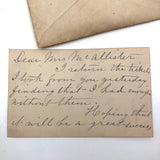 Dear Mrs McAllister
I return the tickets
I took from you yesterday
finding that I had enough
without them.
Hoping that
it will be a great success